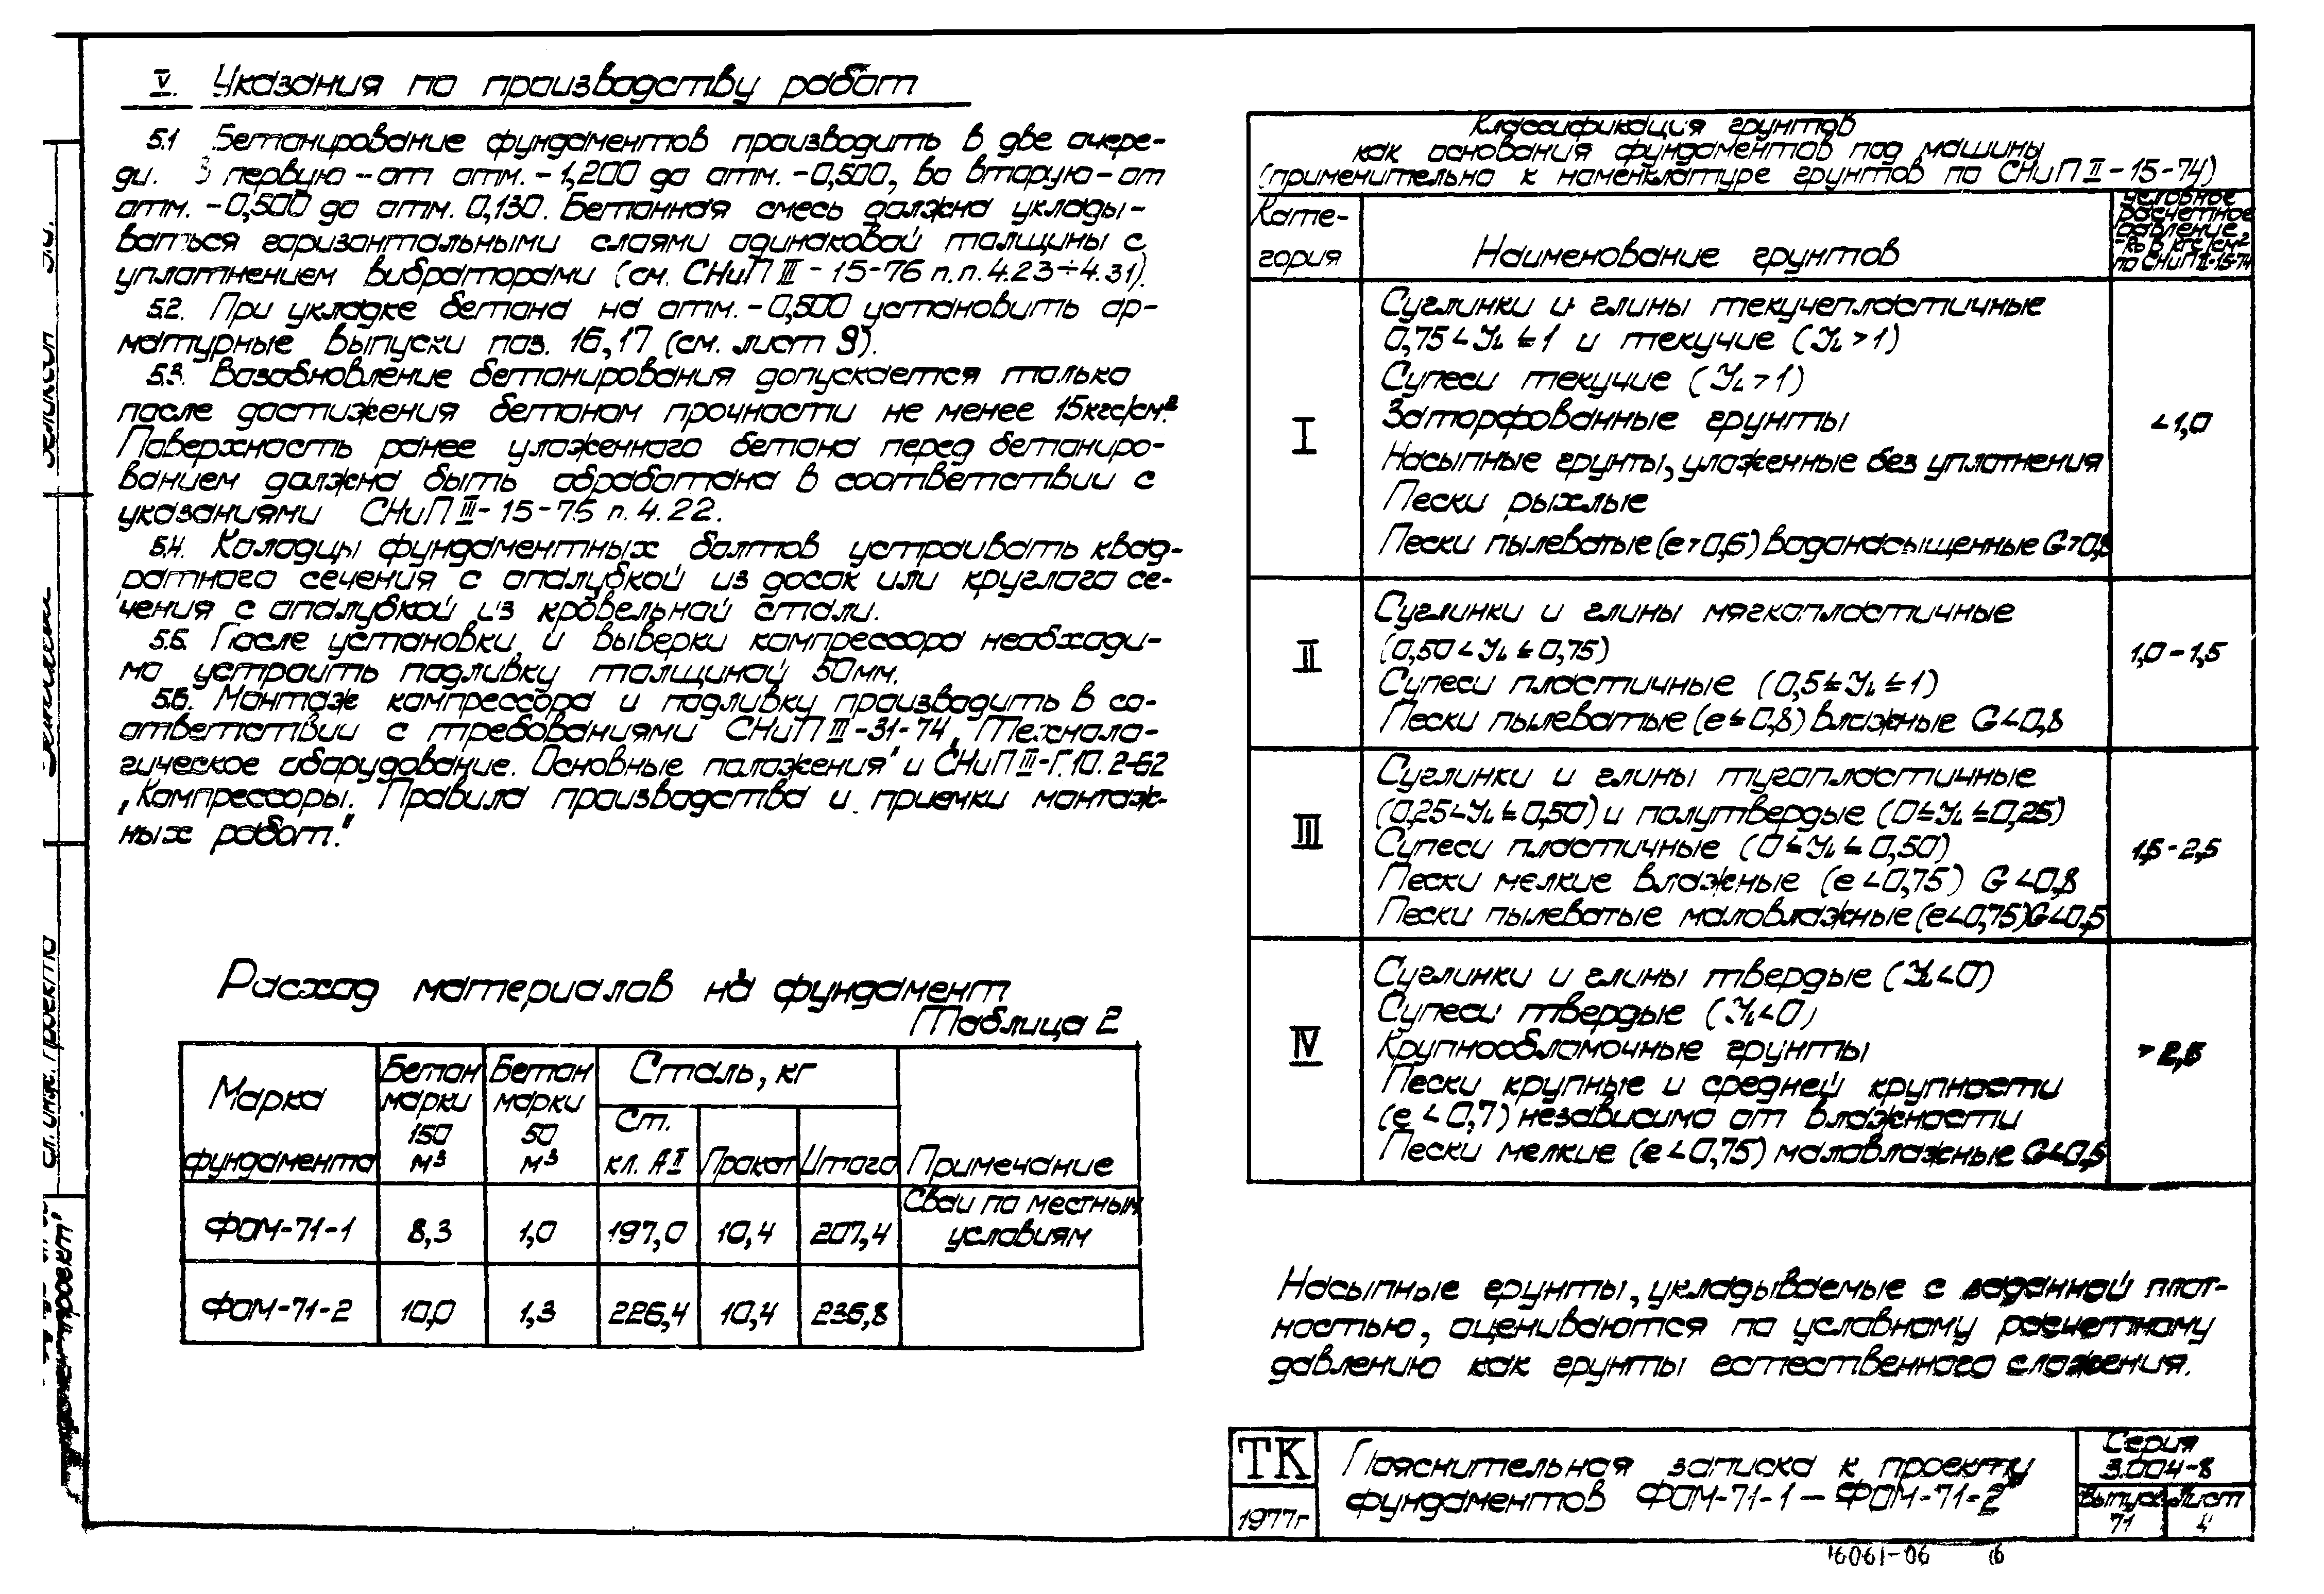 V. Указания по производству работ
5.1 Бетонирование фундаментов производить в две очере-
ди. В первую – от отм. – 1,200 до отм. – 0,500, во вторую – от
отм. – 0,500 до отм. 0,130. Бетонная смесь должна уклады-
ваться горизонтальными слоями одинаковой толщины с
уплотнением вибраторами (см. СНиП III – 15-76 п.п. 4.23÷4.31).
5.2. При укладке бетона на отм. – 0,500 установить ар-
матурные выпуски поз. 16,17 (см. лист 9).
5.3. Возобновление бетонирования допускается только
после достижения бетоном прочности не менее 15кгс/см².
Поверхность ранее уложенного бетона перед бетониро-
ванием должна быть обработана в соответствии с
указаниями СНиП III – 15-76 п. 4.22.
5.4. Колодцы фундаментных болтов устраивать квад-
ратного сечения с опалубкой из досок или круглого се-
чения с опалубкой из кровельной стали.
5.5. После установки и выверки компрессора необходи-
мо устроить подливку толщиной 50мм.
5.6. Монтаж компрессора и подливку производить в со-
ответствии с требованиями СНиП III-31-74 „Техноло-
гическое оборудование. Основные положения" и СНиП III-Г.10.2-62
„Компрессоры. Правила производства и приемки монтаж-
ных работ."
Расход материалов на фундамент
Таблица 2
Марка фундамента Бетон марки 150 м³ Бетон марки 50 м³ Сталь, кг Примечание
Ст. кл. А II Прокат Итого
ФОМ-71-1 8,3 1,0 197,0 10,4 207,4 Сваи по местным условиям
ФОМ-71-2 10,0 1,3 226,4 10,4 236,8
Классификация грунтов
как основания фундаментов под машины
(применительно к номенклатуре грунтов по СНиП II – 15-74)
Кате-
гория
Наименование грунтов
Условное
расчетное
давление,
по СНиП II-15-74
I
Суглинки и глины текучепластичные
0,75 < JL ≤ 1 и текучие (JL > 1)
Супеси текучие (JL > 1)
Заторфованные грунты
Насыпные грунты, уложенные без уплотнения
Пески рыхлые
Пески пылеватые (e > 0,6) водонасыщенные G > 0,8
< 1,0
II
Суглинки и глины мягкопластичные
(0,50 < JL ≤ 0,75)
Супеси пластичные (0,5 ≤ JL ≤ 1)
Пески пылеватые (e ≤ 0,8) влажные G < 0,8
1,0 – 1,5
III
Суглинки и глины тугопластичные
(0,25 < JL ≤ 0,50) и полутвердые (0 ≤ JL ≤ 0,25)
Супеси пластичные (0 ≤ JL ≤ 0,50)
Пески мелкие влажные (e < 0,75) G < 0,8
Пески пылеватые маловлажные (e < 0,75) G < 0,5
1,5 – 2,5
IV
Суглинки и глины твердые (JL < 0)
Супеси твердые (JL < 0)
Крупнообломочные грунты
Пески крупные и средней крупности
(e < 0,7) независимо от влажности
Пески мелкие (e < 0,75) маловлажные G < 0,5
> 2,5
Насыпные грунты, укладываемые с заданной плот-
ностью, оцениваются по условному расчетному
давлению как грунты естественного сложения.
ТК
1977г
Пояснительная записка к проекту
фундаментов ФОМ-71-1 – ФОМ-71-2
Серия
3.004-8
Выпуск 71
Лист 4
16061-06 6